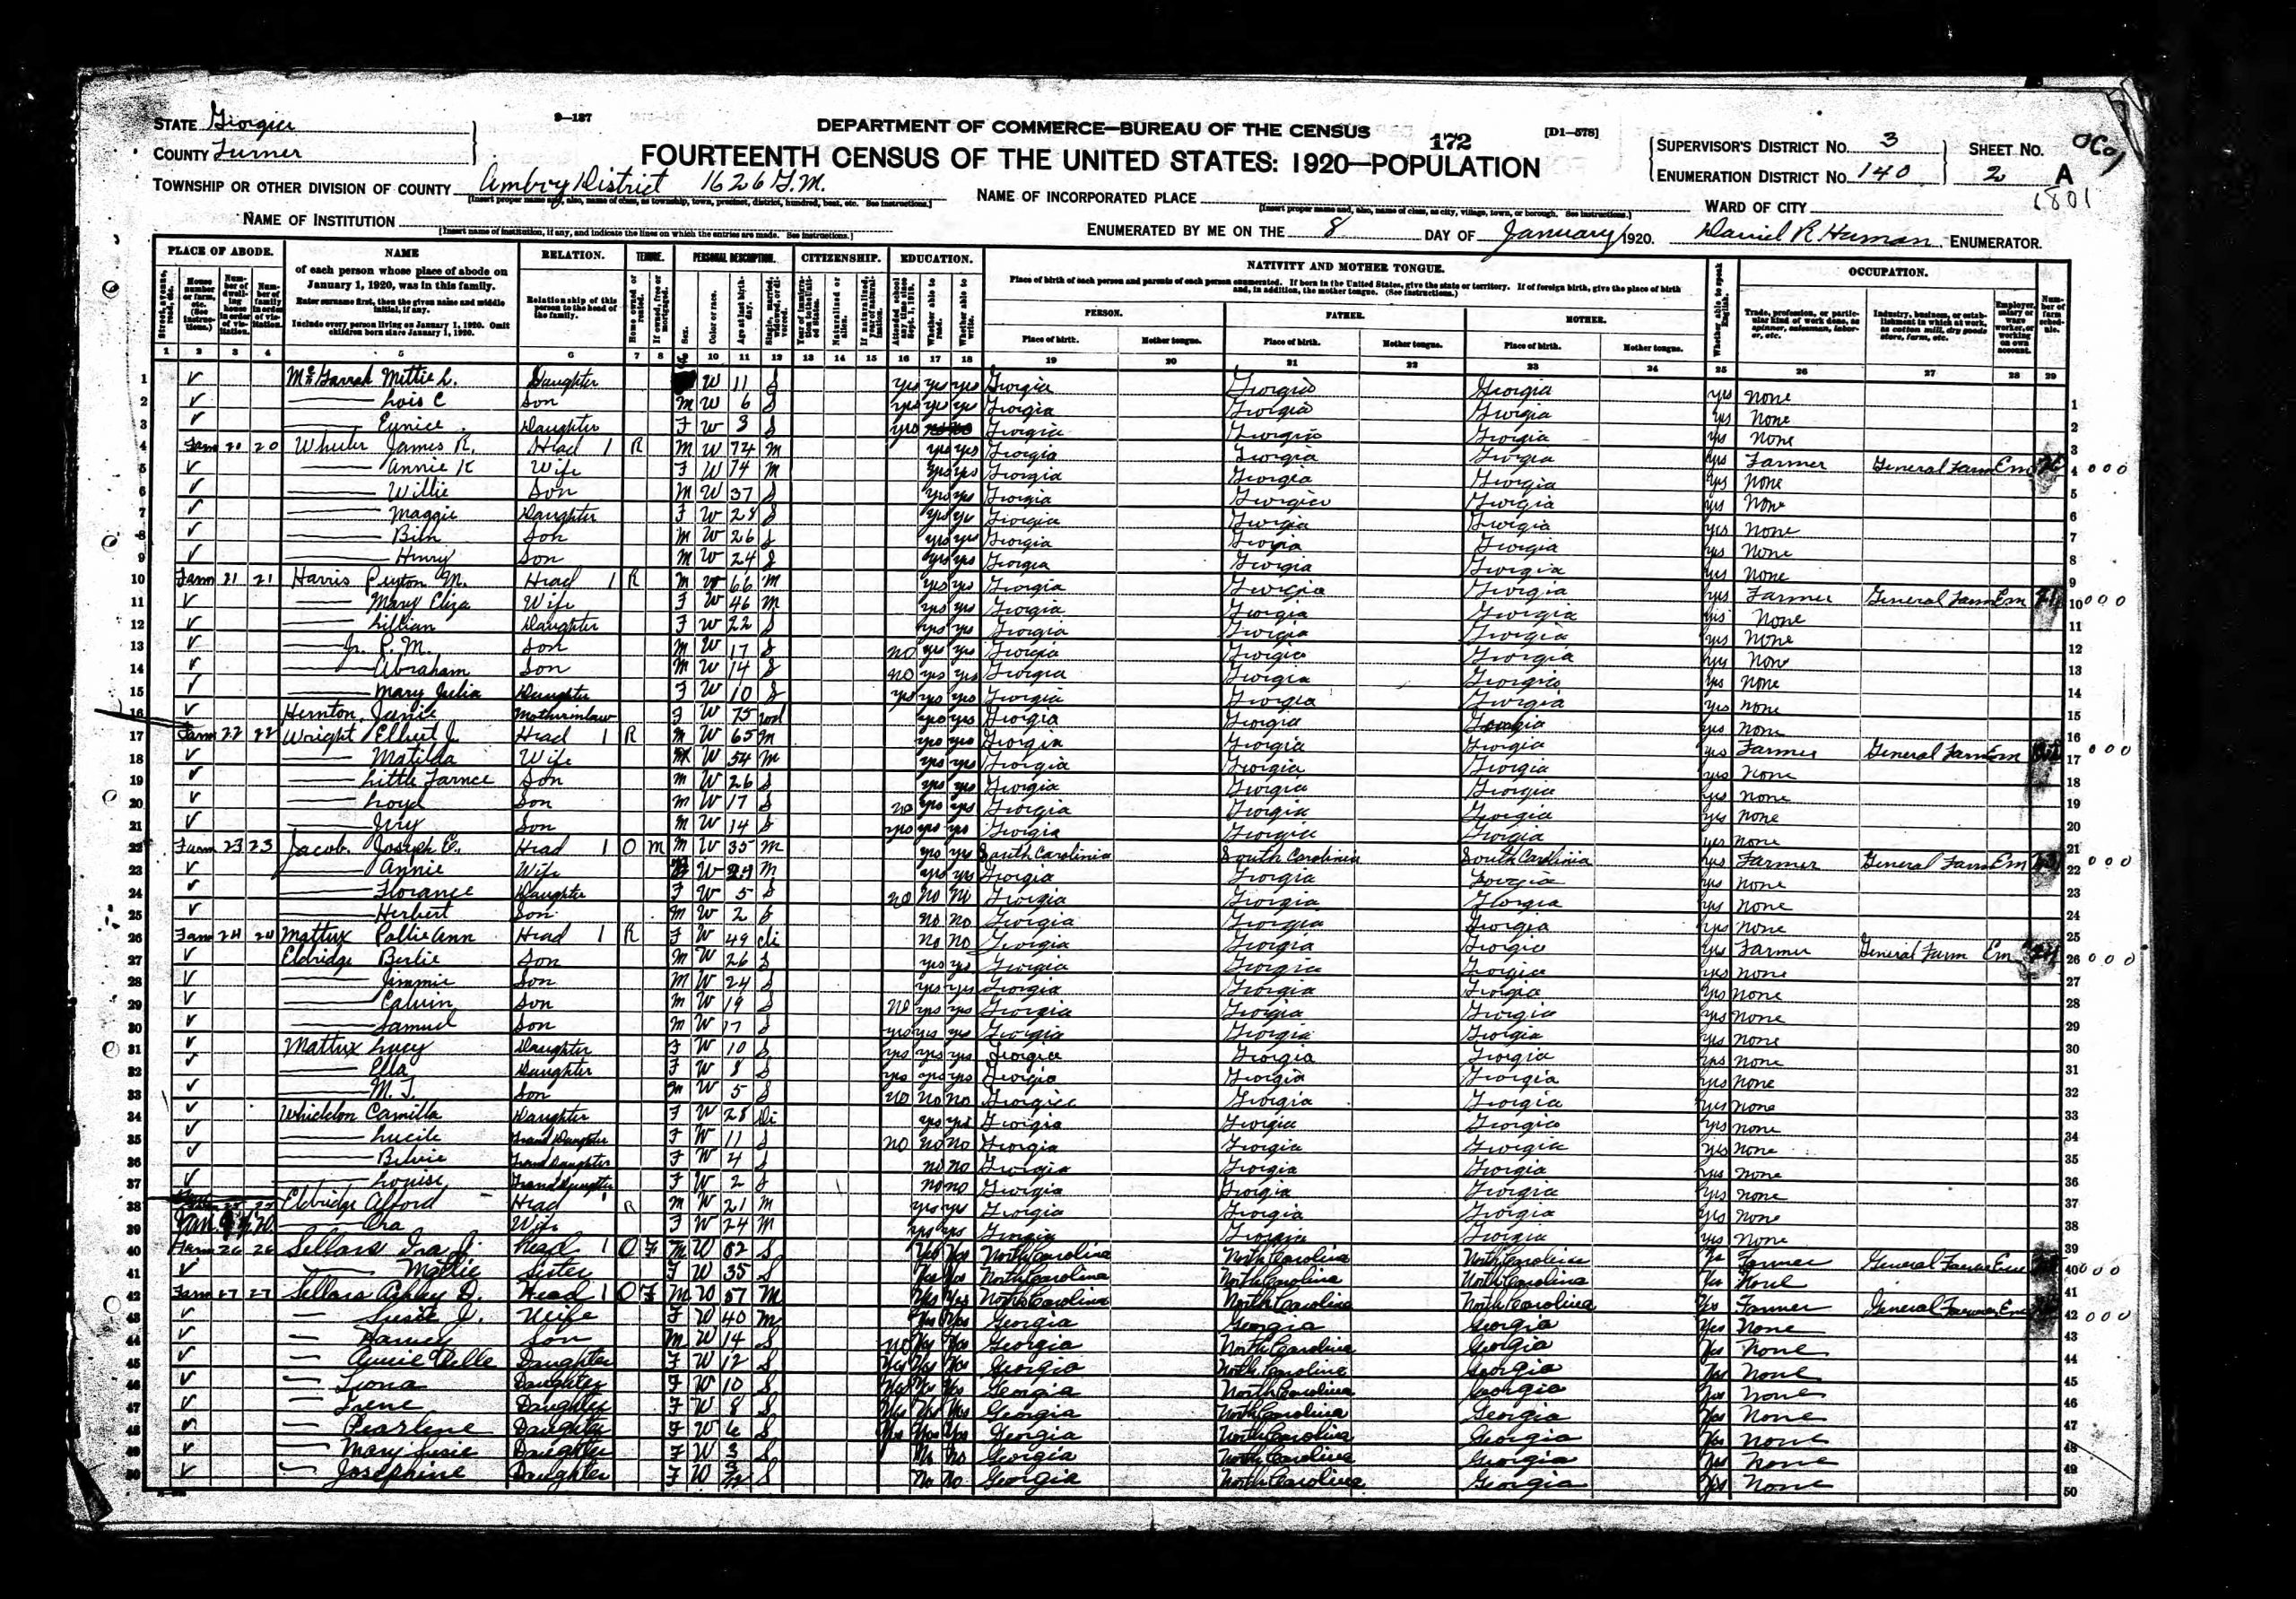 9—137
STATE Georgia
COUNTY Turner
DEPARTMENT OF COMMERCE—BUREAU OF THE CENSUS
172
[D1—578]
FOURTEENTH CENSUS OF THE UNITED STATES: 1920—POPULATION
SUPERVISOR'S DISTRICT No. 3
ENUMERATION DISTRICT No. 140
SHEET No.
2 A
1801
TOWNSHIP OR OTHER DIVISION OF COUNTY Amboy District 1626 G.M.
NAME OF INCORPORATED PLACE
WARD OF CITY
NAME OF INSTITUTION
ENUMERATED BY ME ON THE 8 DAY OF January, 1920. Daniel R. Harman, ENUMERATOR.
PLACE OF ABODE. NAME RELATION. TENURE. PERSONAL DESCRIPTION. CITIZENSHIP. EDUCATION. NATIVITY AND MOTHER TONGUE. OCCUPATION.
of each person whose place of abode on January 1, 1920, was in this family.
Enter surname first, then the given name and middle initial, if any.
Include every person living on January 1, 1920. Omit children born since January 1, 1920.
Relationship of this person to the head of the family.
Place of birth of each person and parents of each person enumerated. If born in the United States, give the state or territory. If of foreign birth, give the place of birth and, in addition, the mother tongue. (See Instructions.)
PERSON. FATHER. MOTHER.
Place of birth. Mother tongue. Place of birth. Mother tongue. Place of birth. Mother tongue.
1 2 3 4 5 6 7 8 9 10 11 12 13 14 15 16 17 18 19 20 21 22 23 24 25 26 27 28 29
1 Mittie L. Daughter W 11 S yes yes yes Georgia Georgia Georgia yes none
2 Lois C Son M W 6 S yes yes yes Georgia Georgia Georgia yes none
3 Eunice Daughter F W 3 S yes Georgia Georgia Georgia yes none
4 Farm 20 20 Wheeler James R. Head 1 R M W 74 M yes yes Georgia Georgia Georgia yes Farmer General Farm Em
5 Annie K Wife F W 74 M yes yes Georgia Georgia Georgia yes none
6 Willie Son M W 37 S yes yes Georgia Georgia Georgia yes none
7 Maggie Daughter F W 28 S yes yes Georgia Georgia Georgia yes none
8 Ben Son M W 26 S yes yes Georgia Georgia Georgia yes none
9 Henry Son M W 24 S yes yes Georgia Georgia Georgia yes none
10 Farm 21 21 Harris Peyton M. Head 1 R M W 66 M yes yes Georgia Georgia Georgia yes Farmer General Farm Em
11 Mary Eliza Wife F W 46 M yes yes Georgia Georgia Georgia yes none
12 Lillian Daughter F W 22 S yes yes Georgia Georgia Georgia yes none
13 Jr. P. M. Son M W 17 S no yes yes Georgia Georgia Georgia yes none
14 Abraham Son M W 14 S no yes yes Georgia Georgia Georgia yes none
15 Mary Julia Daughter F W 10 S yes yes yes Georgia Georgia Georgia yes none
16 Hernton Janie Mother in law F W 75 wd yes yes Georgia Georgia Georgia yes none
17 Farm 22 22 Wright Elbert J. Head 1 R M W 65 M yes yes Georgia Georgia Georgia yes Farmer General Farm Em
18 Matilda Wife W 54 M yes yes Georgia Georgia Georgia yes none
19 Little Son M W 26 S yes yes Georgia Georgia Georgia yes none
20 Loyd Son M W 17 S no yes yes Georgia Georgia Georgia yes none
21 Ivy Son M W 14 S yes yes yes Georgia Georgia Georgia yes none
22 Farm 23 23 Jacob Joseph E. Head 1 O M M W 35 M yes yes South Carolinia South Carolinia South Carolinia yes Farmer General Farm Em
23 Annie Wife W 24 M yes yes Georgia Georgia Georgia yes none
24 Florance Daughter F W 5 S no no no Georgia Georgia Georgia yes none
25 Herbert Son M W 2 S no no Georgia Georgia Georgia yes none
26 Farm 24 24 Mattux Pollie Ann Head 1 R F W 49 di no no Georgia Georgia Georgia yes Farmer General Farm Em
27 Eldridge Berlie Son M W 26 S yes yes Georgia Georgia Georgia yes none
28 Jimmie Son M W 24 S yes yes Georgia Georgia Georgia yes none
29 Calvin Son M W 19 S no yes yes Georgia Georgia Georgia yes none
30 Samuel Son M W 17 S yes yes yes Georgia Georgia Georgia yes none
31 Mattux Lucy Daughter F W 10 S yes yes yes Georgia Georgia Georgia yes none
32 Ella Daughter F W 8 S yes yes yes Georgia Georgia Georgia yes none
33 M. T. Son M W 5 S no no no Georgia Georgia Georgia yes none
34 Whiddon Camilla Daughter F W 28 Di yes yes Georgia Georgia Georgia yes none
35 Lucile Grand Daughter F W 11 S no no no Georgia Georgia Georgia yes none
36 Belvie Grand Daughter F W 4 S no no Georgia Georgia Georgia yes none
37 Louise Grand Daughter F W 2 S no no Georgia Georgia Georgia yes none
38 Eldridge Alford Head R M W 21 M yes yes Georgia Georgia Georgia yes none
39 Ora Wife F W 24 M yes yes Georgia Georgia Georgia yes none
40 Farm 26 26 Sellars Ira J. Head 1 O F M W S Yes Yes North Carolina North Carolina North Carolina Yes Farmer General Farm Em
41 Mattie Sister F W 35 S Yes Yes North Carolina North Carolina North Carolina Yes None
42 Farm 27 27 Sellars Ashley D. Head 1 O F M W 57 M Yes Yes North Carolina North Carolina North Carolina Yes Farmer General Farm Em
43 Susie J. Wife F W 40 M Yes Yes Georgia Georgia Georgia Yes None
44 Harvey Son M W 14 S no Yes Yes Georgia North Carolina Georgia Yes None
45 Annie Belle Daughter F W 12 S Yes Yes Yes Georgia North Carolina Georgia Yes None
46 Leona Daughter F W 10 S Yes Yes Yes Georgia North Carolina Georgia Yes None
47 Irene Daughter F W 8 S Yes Yes Yes Georgia North Carolina Georgia Yes None
48 Pearlene Daughter F W 6 S Yes Yes Yes Georgia North Carolina Georgia Yes None
49 Mary Susie Daughter F W 3 S No No Georgia North Carolina Georgia Yes None
50 Josephine Daughter F W S No No Georgia North Carolina Georgia Yes None